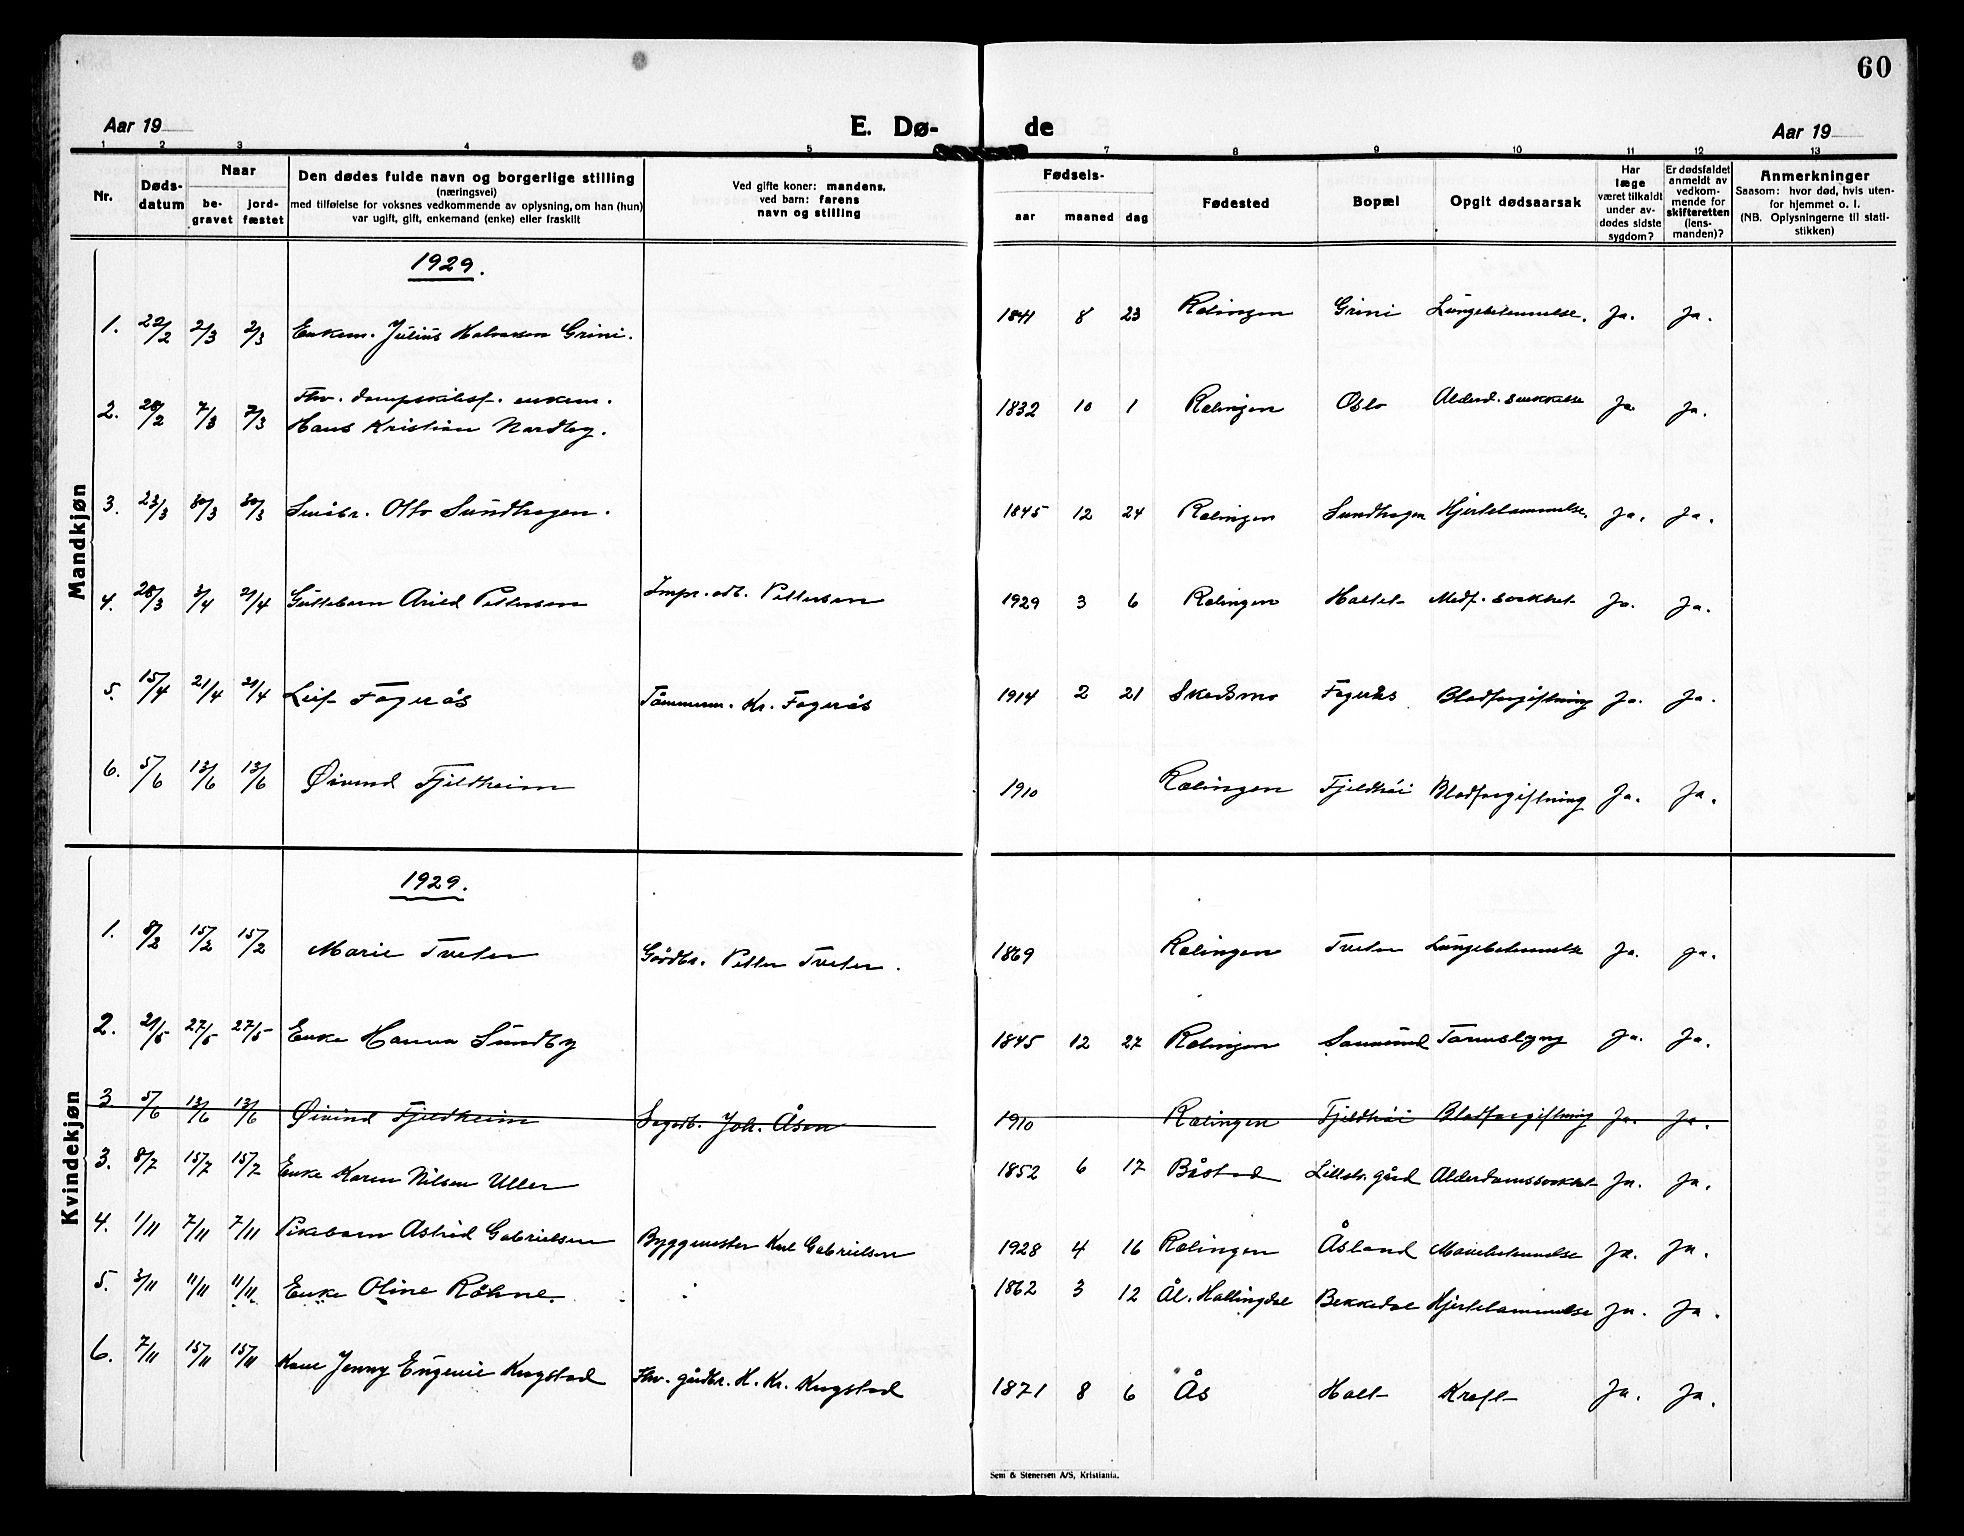 60
Aar 19
E. Dø-
de
Aar 19
1 2 3 4 5 7 8 9 10 11 12 13
Nr.
Døds-
datum
Naar
be-
gravet
jord-
fæstet
Den dødes fulde navn og borgerlige stilling
(næringsvei)
med tilføielse for voksnes vedkommende av oplysning, om han (hun)
var ugift, gift, enkemand (enke) eller fraskilt
Ved gifte koner: mandens,
ved barn: farens
navn og stilling
Fødsels-
aar
maaned
dag
Fødested
Bopæl
Opgit dødsaarsak
Har
læge
været tilkaldt
under av-
dødes sidste
sygdom?
Er dødsfaldet
anmeldt av
vedkom-
mende for
skifteretten
(lens-
manden)?
Anmerkninger
Saasom: hvor død, hvis uten-
for hjemmet o. l.
(NB. Oplysningerne til stati-
stikken)
Mandkjøn
1929.
1. 22/2 2/3 2/3 Enkem. Julius Halvorsen Grini. 1841 8 23 Rælingen Grini Lungebetennelse. Ja. Ja.
Fhv. dampskibsf. enkem.
2. 28/2 7/3 7/3 Hans Kristian Nordby. 1832 10 1 Rælingen Oslo Alderd. svekkelse Ja. Ja.
3. 23/3 30/3 30/3 Småbr. Otto Sundhagen. 1845 12 24 Rælingen Sundhagen Hjertelammelse. Ja. Ja.
4. 28/3 3/4 21/4 Guttebarn Arild Pettersen Impr. arb. Pettersen 1929 3 6 Rælingen Holtet Medf. svakhet Ja. Ja.
5. 15/4 21/4 21/4 Leif Fagerås Tømmerm. Kr. Fagerås 1914 2 21 Skedsmo Fagerås Blodforgiftning Ja. Ja.
6. 5/6 13/6 13/6 Øivind Fjeldheim 1910 Rælingen Fjeldhöi Blodforgiftning Ja. Ja.
Kvindekjøn
1929.
1. 8/2 15/2 15/2 Marie Tveter Gårdbr. Petter Tveter. 1869 Rælingen Tveter Lungebetennelse Ja. Ja.
2. 21/5 27/5 27/5 Enke Hanna Sundby 1845 12 27 Rælingen Tarmslyng Ja. Ja.
3 5/6 13/6 13/6 Øivind Fjeldheim Sagarb. Joh. Åsen 1910 Rælingen Fjeldhöi Blodforgiftning Ja. Ja.
3. 8/7 15/7 15/7 Enke Karen Nilsen Uller 1852 6 17 Båstad Lillestr. gård Alderdomssvakhet Ja. Ja.
4. 1/11 7/11 7/11 Pikebarn Astrid Gabrielsen Byggmester Karl Gabrielsen 1928 4 16 Rælingen Åsland Mavebetennelse Ja. Ja.
5. 3/11 11/11 11/11 Enke Oline Röhne. 1862 3 12 Ål. Hallingdal Bekkedal Hjertelammelse Ja. Ja.
6. 7/11 15/11 15/11 Kone Jenny Eugenie Krogstad Fhv. gårdbr. H. Kr. Krogstad 1871 8 6 Ås Holt Kreft Ja. Ja.
Sem & Stenersen A/S, Kristiania.